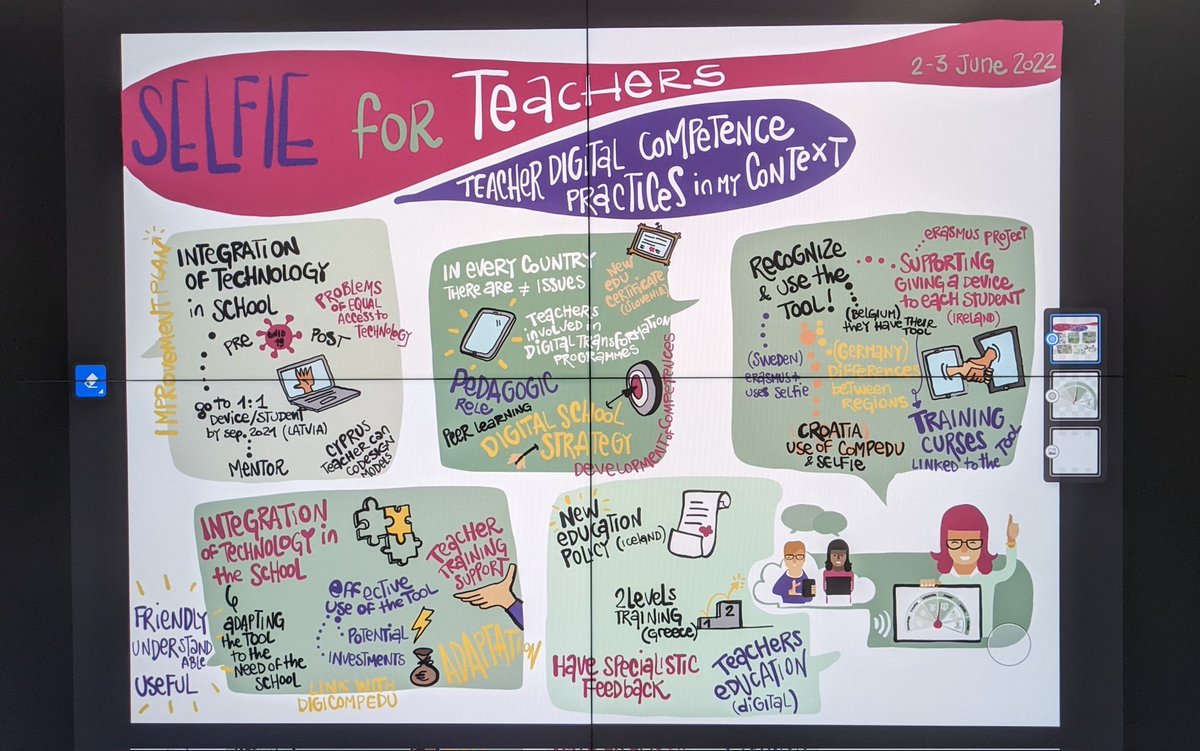 SELFIE for Teachers
2-3 June 2022
Teacher Digital Competence
Practices in my Context
Improvement plan
Integration
of technology
in school
Problems
of equal
access to
technology
Pre
COVID
19
Post
go to 1:1
device/student
by sep. 2021 (Latvia)
Mentor
Cyprus
teacher can
codesign
models
In every country
there are ≠ issues
New
edu
certificate
(Slovenia)
Teachers
involved in
Digital transformation
programmes
Pedagogic
role
Peer learning
Digital School
Strategy
Development of competences
Recognize
& use the
tool!
Erasmus project
Supporting
giving a device
to each student
(Ireland)
(Belgium)
they have their
tool
(Sweden)
erasmus+
uses selfie
(Germany)
Differences
between
regions
(Croatia)
use of Compedu
& selfie
Training
curses
linked to the tool
Integration
of technology in
the school
adapting
the tool
to the
need of the
school
Friendly
understand
able
useful
effective
use of the tool
Potential
investments
Link with
Digicompedu
Teacher
training
support
€
Adaptation
New
education
policy (Iceland)
2 levels
training
(Greece)
1
2
Have specialistic
feedback
Teachers
education
(digital)